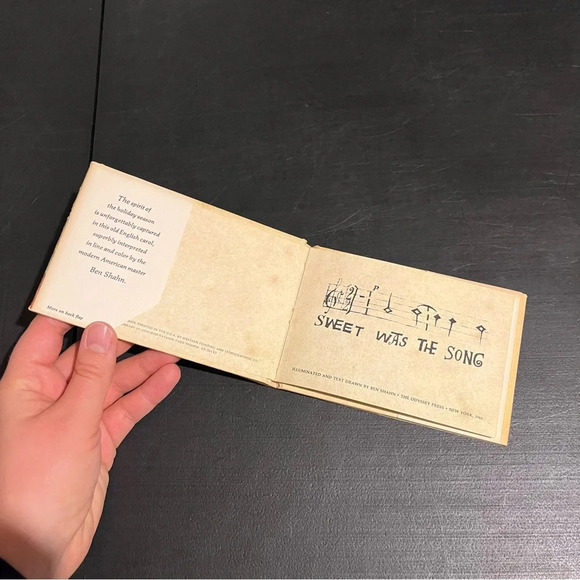 The spirit of
the holiday season
is unforgettably captured
in this old English carol,
superbly interpreted
in line and color by the
modern American master
Ben Shahn.
More on back flap
PRINTED IN THE U.S.A. BY WESTERN PRINTING AND LITHOGRAPHING CO.
SWEET WAS THE SONG
ILLUMINATED AND TEXT DRAWN BY BEN SHAHN • THE ODYSSEY PRESS • NEW YORK, INC.